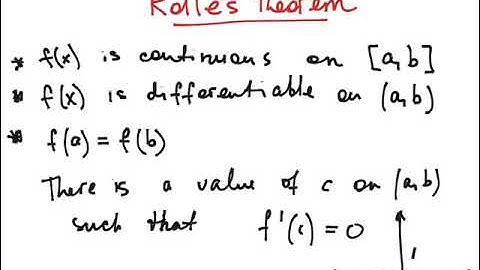 Rolle's Theorem
* f(x) is continuous on [a,b]
* f(x) is differentiable on (a,b)
* f(a) = f(b)
There is a value of c on (a,b)
such that f'(c) = 0